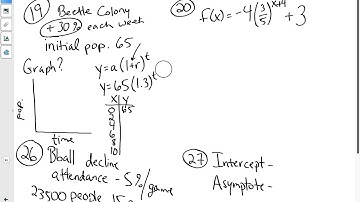 19 Beetle Colony
+30% each week
initial pop. 65
Graph?
y=a(1+r)^t
y=65(1.3)^t
pop.
time
x y
0 65
2
4
6
8
10
20 f(x)=-4(3/5)^(x+4)+3
26 Bball decline
attendance -5%/game
23500 people
27 Intercept-
Asymptote-